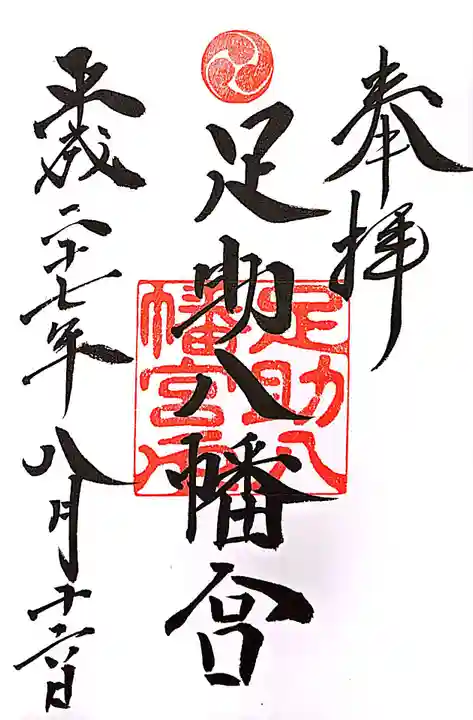 奉拝
足助八幡宮
足助八
幡宮
平成二十七年八月十六日